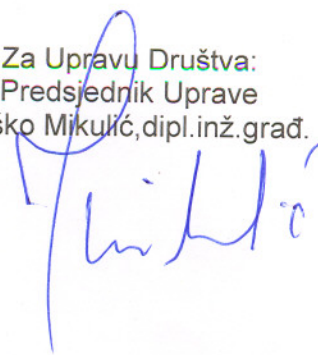 Za Upravu Društva:
Predsjednik Uprave
ško Mikulić,dipl.inž.građ.
Mikulić